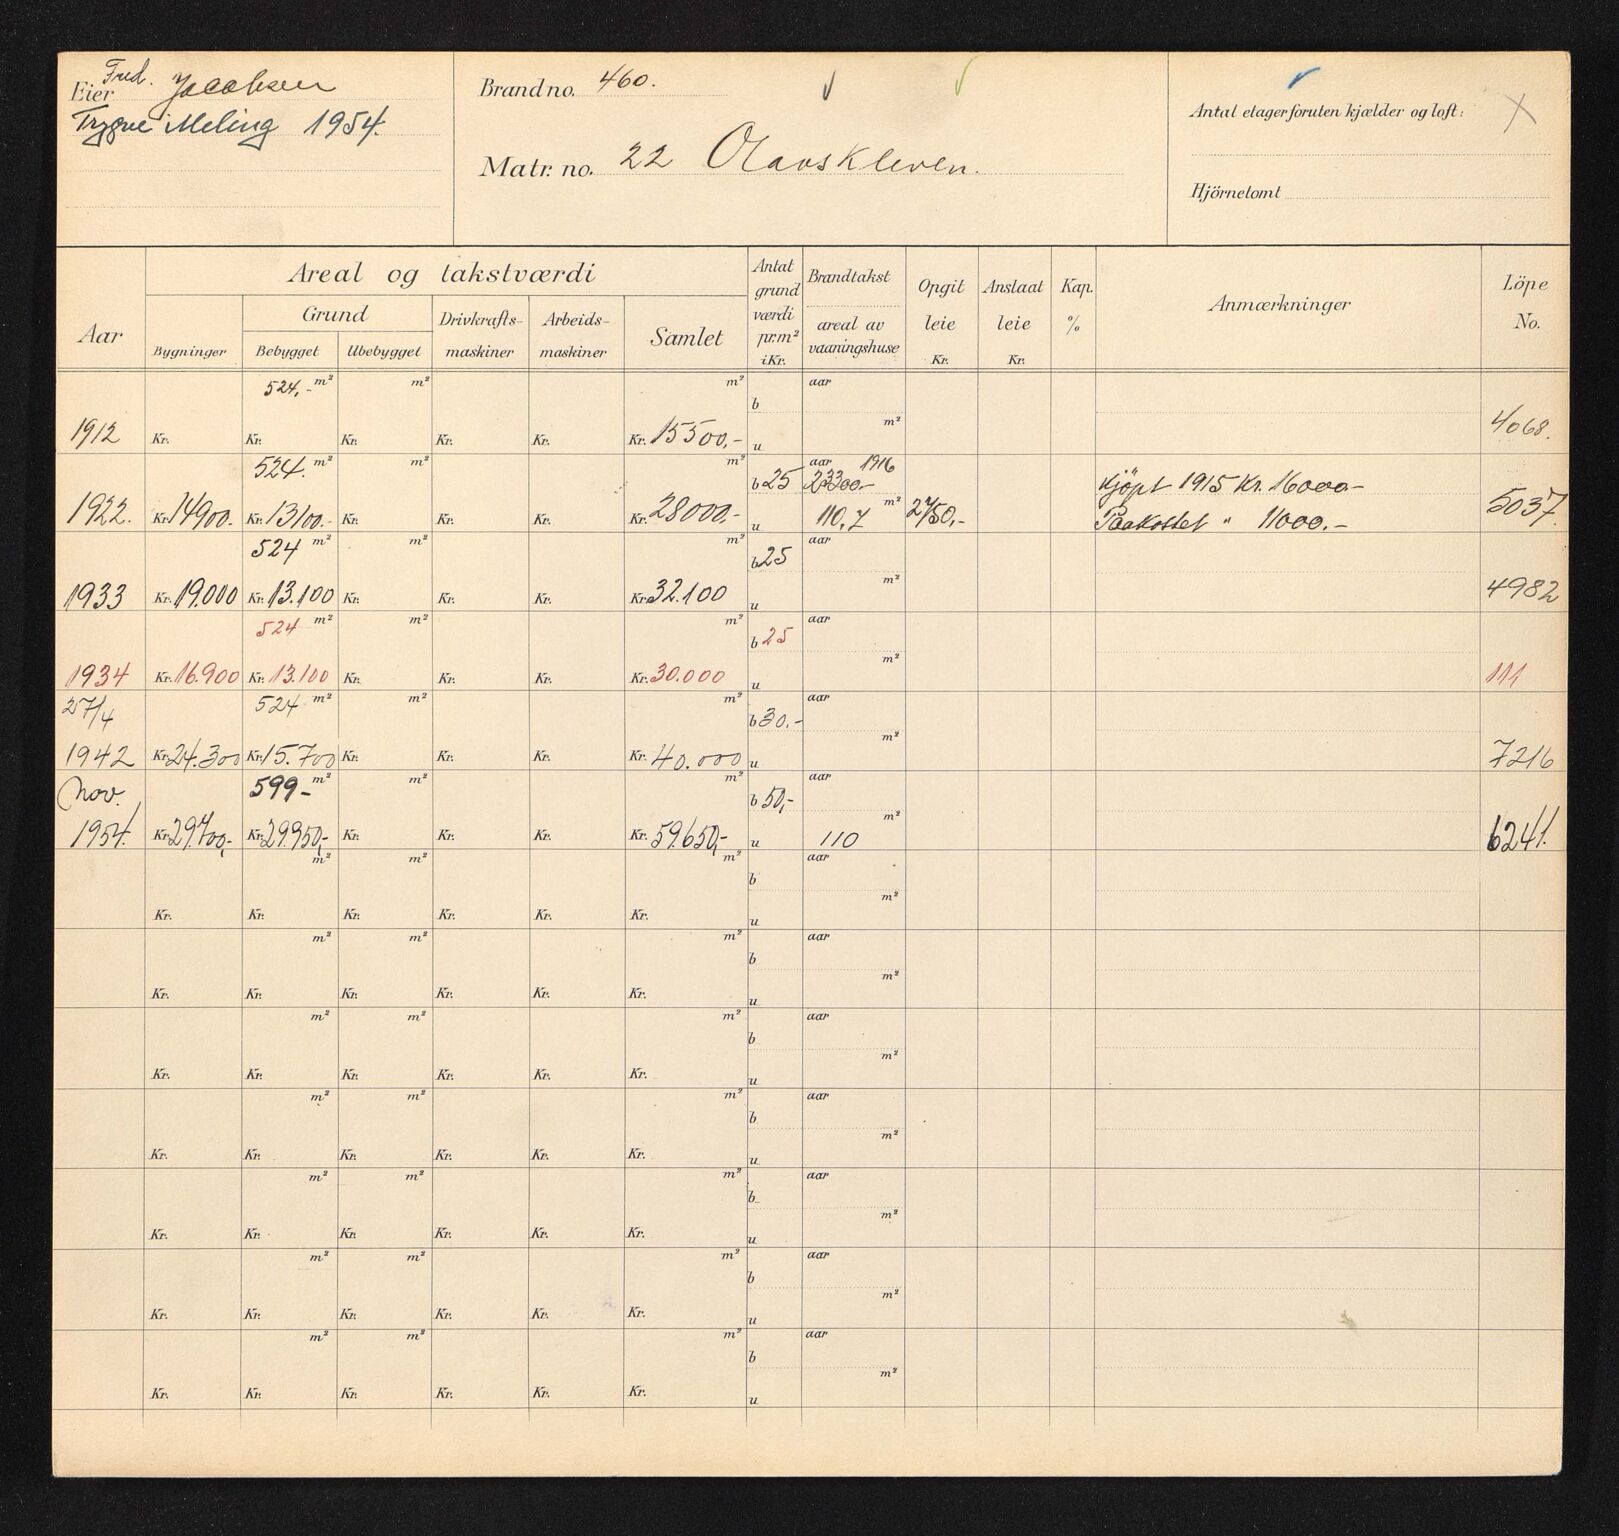 Eier Fred. Jacobsen
Trygve Meling 1954.
Brand no. 460.
Matr. no. 22 Olavskleven.
Antal etager foruten kjælder og loft:
Hjörnetomt
Aar
Areal og takstværdi
Grund
Bygninger
Bebygget
Ubebygget
Drivkrafts-
maskiner
Arbeids-
maskiner
Samlet
Antat
grund
værdi
pr. m²
i Kr.
Brandtakst
areal av
vaaningshuse
Opgit
leie
Kr.
Anslaat
leie
Kr.
Kap.
%
Anmærkninger
Löpe
No.
524.- m² m² m² aar
b
m²
1912 Kr. Kr. Kr. Kr. Kr. Kr. 15500,- u 4068.
524. m² m² m² aar 1916
b 25 23300.- Kjöpt 1915 Kr. 16000.-
1922. Kr. 14900.- Kr. 13100.- Kr. Kr. Kr. Kr. 28000,- u 110,7 m² 2750,- Paakostet " 11000.- 5037.
524 m² m² m² aar
b 25
m²
1933 Kr. 19.000 Kr. 13.100 Kr. Kr. Kr. Kr. 32.100 u 4982
524 m² m² m² aar
b 25
m²
1934 Kr. 16.900 Kr. 13.100 Kr. Kr. Kr. Kr. 30.000 u 111
27/4 524 m² m² m² aar
b 30.-
m²
1942 Kr. 24.300 Kr. 15.700 Kr. Kr. Kr. Kr. 40.000 u 7216
Nov. 599- m² m² m² aar
b 50,-
m²
1954. Kr. 29.700,- Kr. 29.950,- Kr. Kr. Kr. Kr. 59.650,- u 110 6241.
m² m² m² aar
b
m²
Kr. Kr. Kr. Kr. Kr. Kr. u
m² m² m² aar
b
m²
Kr. Kr. Kr. Kr. Kr. Kr. u
m² m² m² aar
b
m²
Kr. Kr. Kr. Kr. Kr. Kr. u
m² m² m² aar
b
m²
Kr. Kr. Kr. Kr. Kr. Kr. u
m² m² m² aar
b
m²
Kr. Kr. Kr. Kr. Kr. Kr. u
m² m² m² aar
b
m²
Kr. Kr. Kr. Kr. Kr. Kr. u
m² m² m² aar
b
m²
Kr. Kr. Kr. Kr. Kr. Kr. u